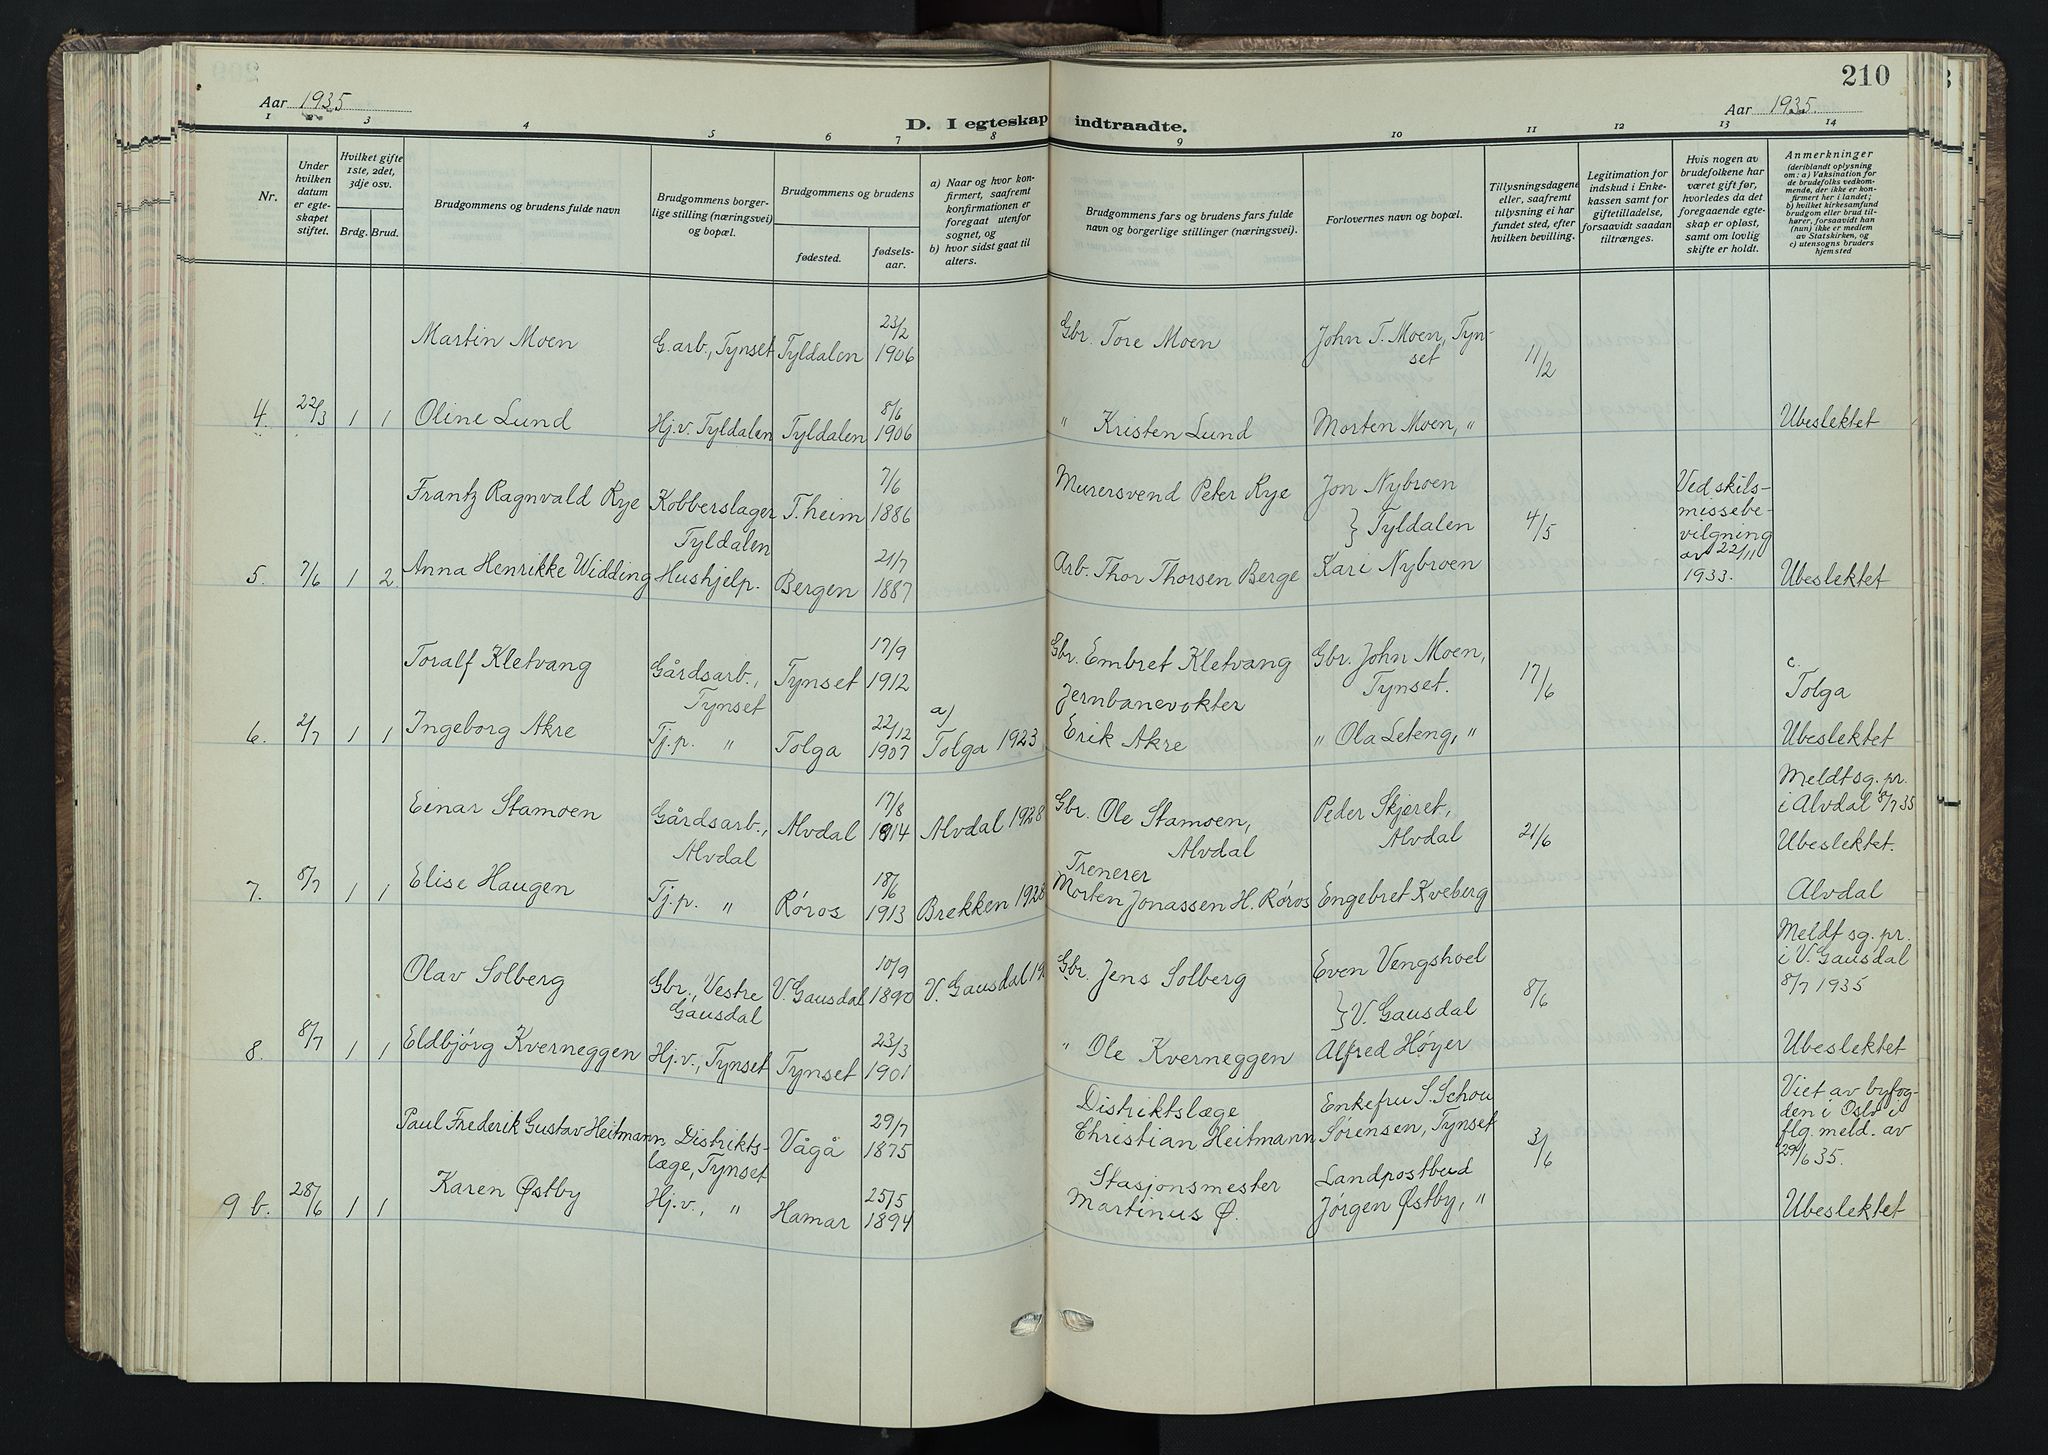 210
Aar 1935
Aar 1935.
D. I egteskap indtraadte.
1 2 3 4 5 6 7 8 9 10 11 12 13 14
Nr.
Under hvilken datum er egteskapet stiftet.
Hvilket gifte 1ste, 2det, 3dje osv.
Brdg. Brud.
Brudgommens og brudens fulde navn
Brudgommens borgerlige stilling (næringsvei) og bopæl.
Brudgommens og brudens
fødested.
fødselsaar.
a) Naar og hvor konfirmert, saafremt konfirmationen er foregaat utenfor sognet, og
b) hvor sidst gaat til alters.
Brudgommens fars og brudens fars fulde navn og borgerlige stillinger (næringsvei).
Forlovernes navn og bopæl.
Tillysningsdagene eller, saafremt tillysning ei har fundet sted, efter hvilken bevilling.
Legitimation for indskud i Enkekassen samt for giftetilladelse, forsaavidt saadan tiltrænges.
Hvis nogen av brudefolkene har været gift før, hvorledes da det foregaaende egteskap er opløst, samt om lovlig skifte er holdt.
Anmerkninger
(deriblandt oplysning om: a) Vaksination for de brudefolks vedkommende, der ikke er konfirmert her i landet; b) hvilket kirkesamfund brudgom eller brud tilhører, forsaavidt han (hun) ikke er medlem av Statskirken, og c) utensogns bruders hjemsted
Martin Moen G.arb., Tynset Tyldalen 23/2 1906 Gbr. Tore Moen John T. Moen, Tynset 11/2
4. 22/3 1 1 Oline Lund Hj.v. Tyldalen Tyldalen 8/6 1906 " Kristen Lund Morten Moen, " Ubeslektet
Frantz Ragnvald Rye Kobberslager Tyldalen T.heim 7/6 1886 Murersvend Peter Rye Jon Nybroen } Tyldalen 4/5 Ved skilsmissebevilgning av 22/11 1933.
5. 7/6 1 2 Anna Henrikke Widding Hushjelp. Bergen 21/7 1887 Arb. Thor Thorsen Berge Kari Nybroen Ubeslektet
Toralf Kletvang Gårdsarb., Tynset Tynset 17/9 1912 Gbr. Embret Kletvang Gbr. John Moen, Tynset. 17/6 c. Tolga
6. 2/7 1 1 Ingeborg Akre Tj.p. " Tolga 22/12 1907 a) Tolga 1923 Jernbanevokter Erik Akre " Ola Leteng, " Ubeslektet
Einar Stamoen Gårdsarb., Alvdal Alvdal 17/8 1914 Alvdal 1928 Gbr. Ole Stamoen, Alvdal Peder Skjæret, Alvdal 21/6 Meldt sg. pr. i Alvdal 8/7 35 Ubeslektet.
7. 8/7 1 1 Elise Haugen Tj.p. " Røros 18/6 1913 Brekken 1928 Trenerer Morten Jonassen H. Røros Engebret Kveberg Alvdal
Olav Solberg Gbr., Vestre Gausdal V. Gausdal 10/9 1890 V. Gausdal 19 Gbr. Jens Solberg Even Vengshoel } V. Gausdal 8/6 Meldt sg. pr. i V. Gausdal 8/7 1935
8. 8/7 1 1 Eldbjørg Kverneggen Hj.v., Tynset Tynset 23/3 1901 " Ole Kverneggen Alfred Høyer Ubeslektet
Paul Frederik Gustav Heitmann Distriktslæge, Tynset Vågå 29/7 1875 Distriktslæge Christian Heitmann Enkefru S. Schou Sørensen, Tynset 3/6 Viet av byfogden i Oslo i flg. meld. av 29/6 35.
9 b. 28/6 1 1 Karen Østby Hj.v., " Hamar 25/5 1894 Stasjonsmester Martinus Ø. Landpostbud Jørgen Østby, " Ubeslektet